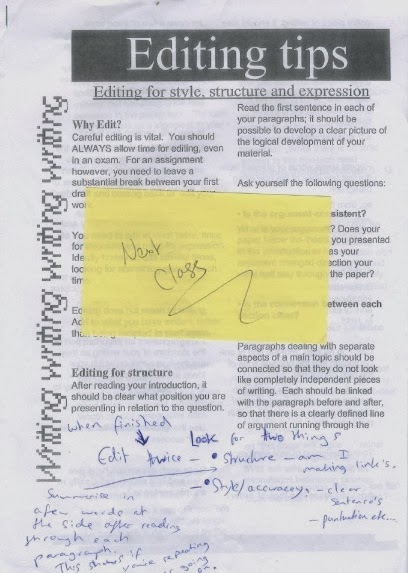 Editing tips
Editing for style, structure and expression
Writing writing writing writing writing
Why Edit?
Careful editing is vital. You should
ALWAYS allow time for editing, even
in an exam. For an assignment
however, you need to leave a
substantial break between your first
Editing for structure
After reading your introduction, it
should be clear what position you are
presenting in relation to the question.
Read the first sentence in each of
your paragraphs; it should be
possible to develop a clear picture of
the logical development of your
material.
Ask yourself the following questions:
• Is the argument consistent?
? Does your
you presented
as your
your
the paper?
between each
Paragraphs dealing with separate
aspects of a main topic should be
connected so that they do not look
like completely independent pieces
of writing. Each should be linked
with the paragraph before and after,
so that there is a clearly defined line
of argument running through the
Next
Class
when finished
Look for two things
Edit twice - • Structure - am I
making link's.
- • Style/accuracy, - clear
sentence's
- puntuation etc...
Summerise in
a few words at
the side after reading
through each
paragraph.
This shows if you're repeating
going